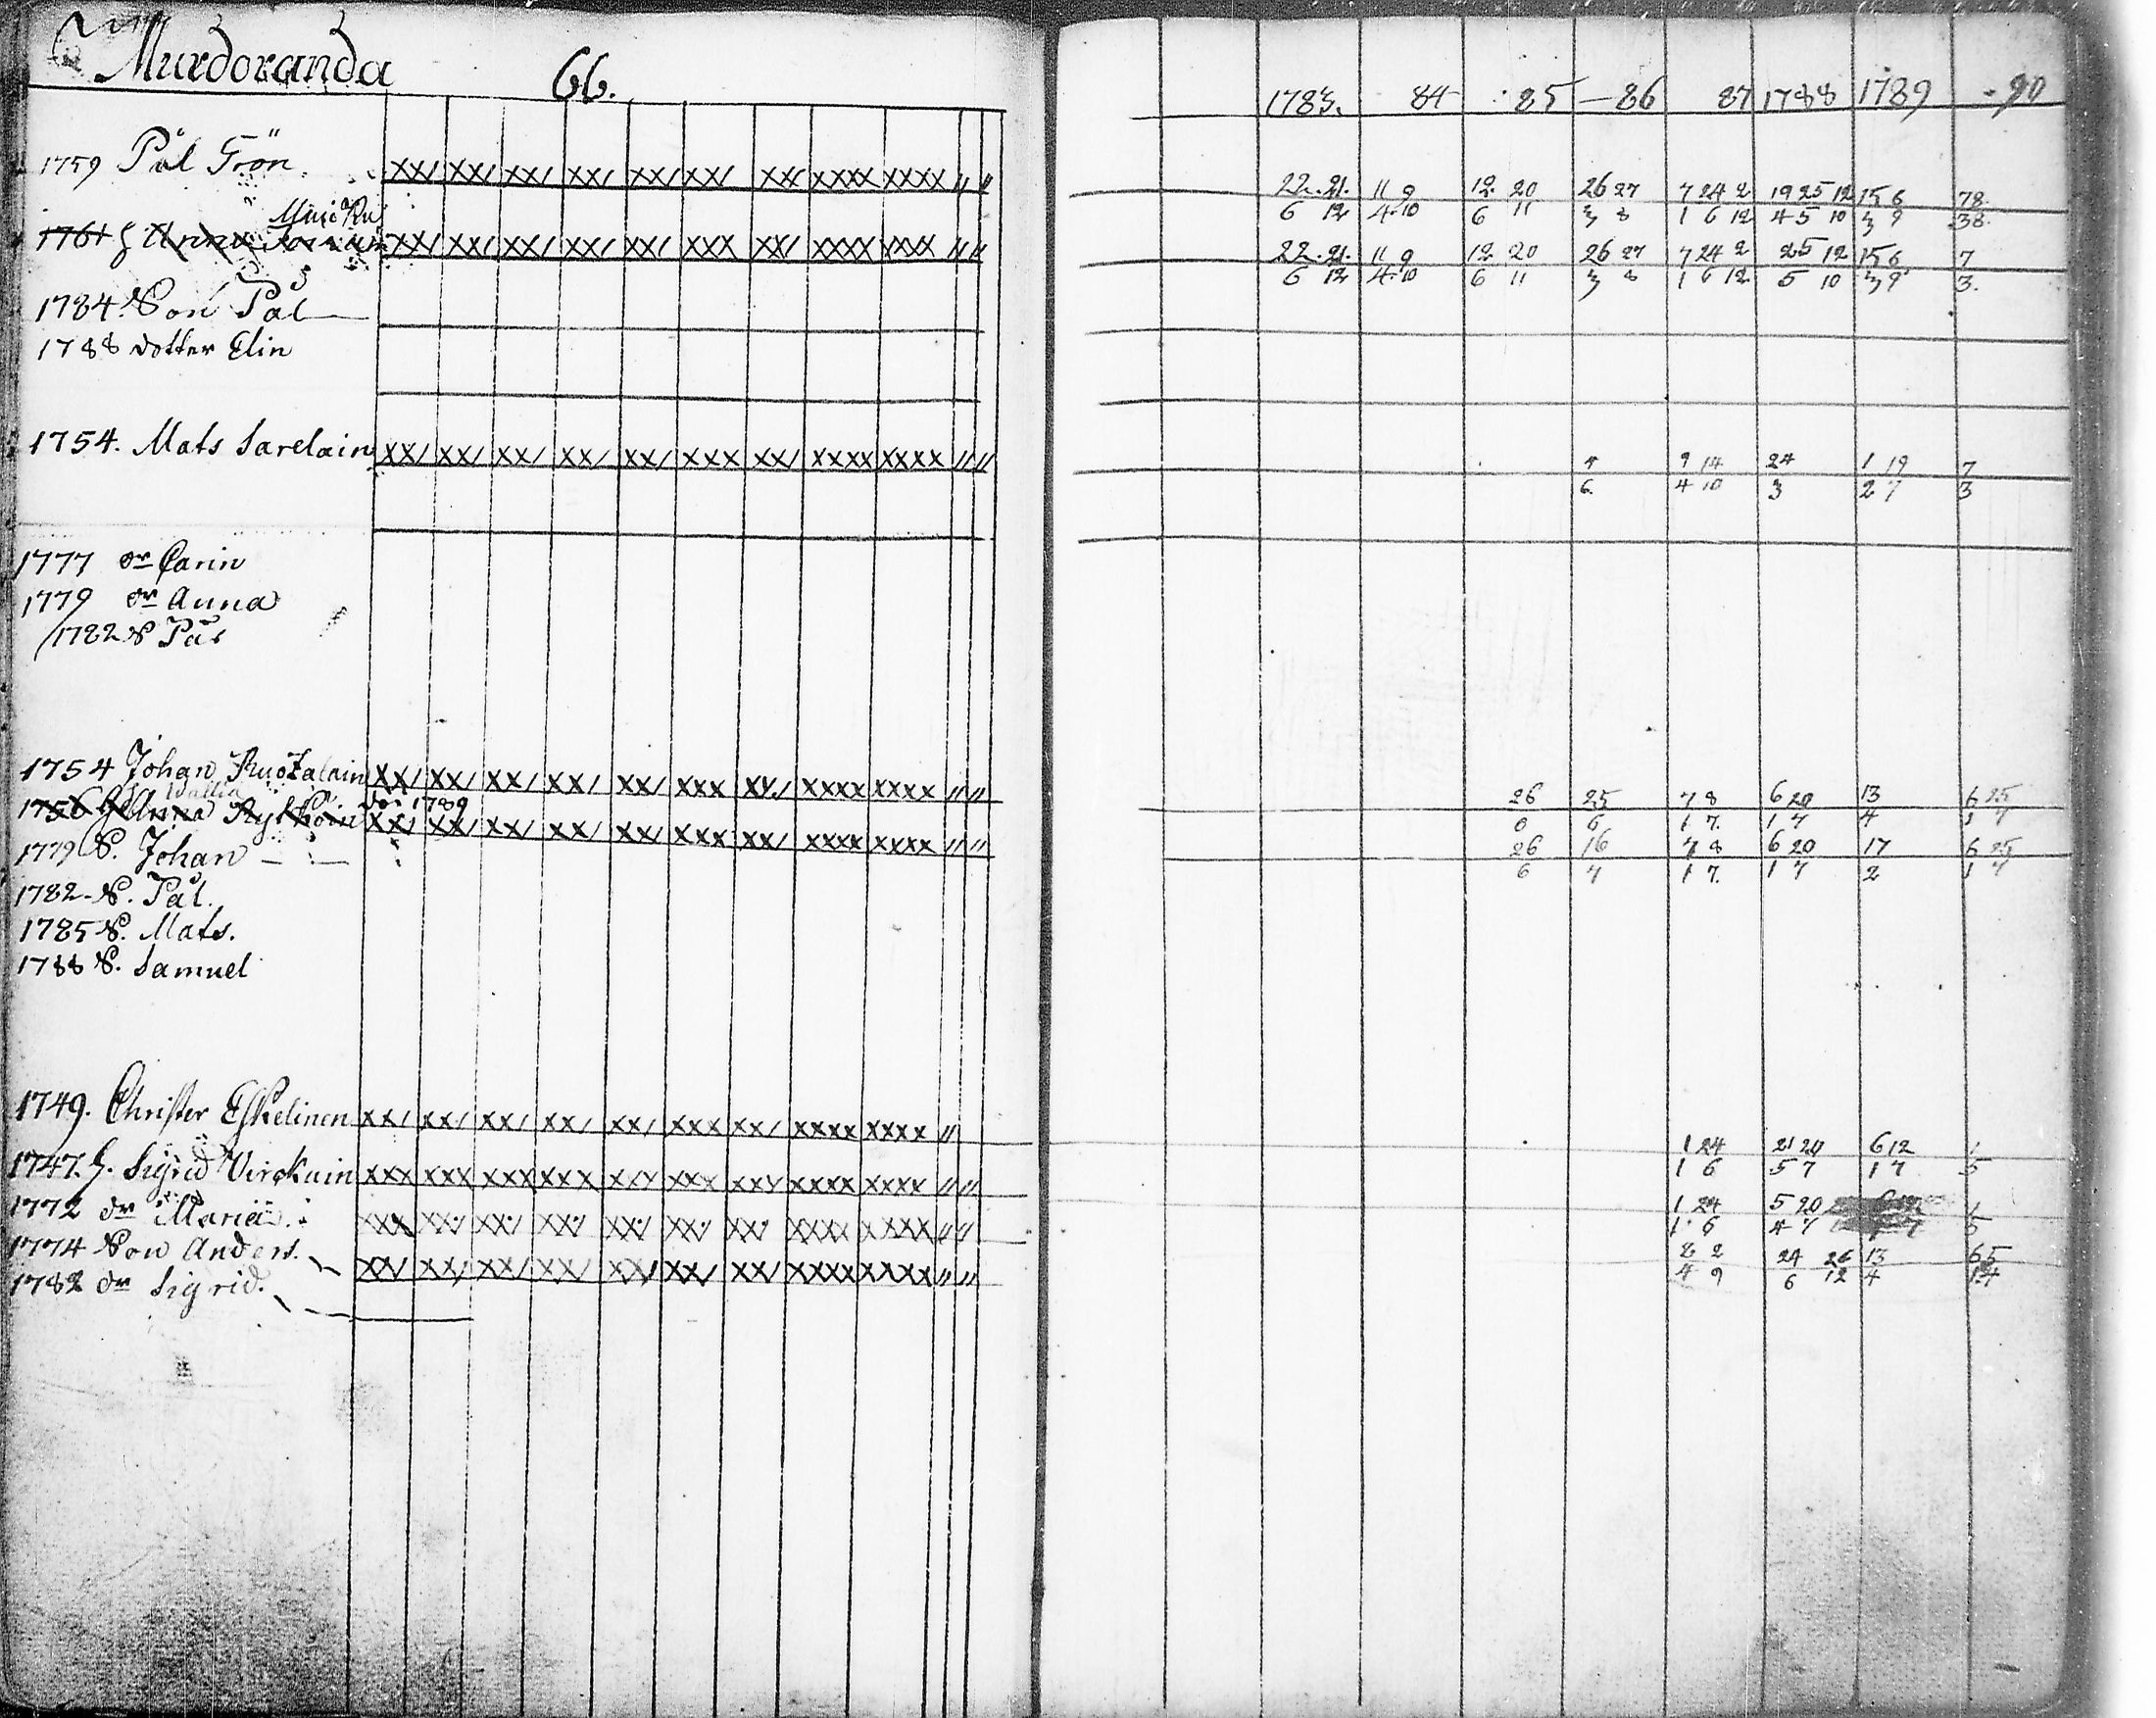 Murdoranda 66.
1783. 84 85 - 86 87 1788 1789 - 90
1759 Pål Grön. XX/ XX/ XX/ XX/ XX/ XX/ XX XXXX XXXX // // 22. 21. 11 9 12 20 26 27 7 24 2 19 25 12 15 6 78
6 12 4 10 6 11 3 8 1 6 12 4 5 10 3 9 38
1761 h Anna XX/ XX/ XX/ XX/ XX/ XXX XX/ XXXX XXX // // 22. 21. 11 9 12 20 26 27 7 24 2 25 12 15 6 7
6 12 4 10 6 11 3 8 1 6 12 5 10 3 9 3.
1784. Son Pål
1788 dotter Elin
1754. Mats Sarelain XX/ XX/ XX/ XX/ XX/ XXX XX/ XXXX XXXX // // 4 9 14 24 1 19 7
6 4 10 3 2 7 3
1777 dr Carin
1779 dr Anna
1782 S Pål
1754 Johan Ruotzalain XX/ XX/ XX/ XX/ XX/ XXX XX/ XXXX XXXX // // 26 25 7 8 6 20 13 6 25
6 6 1 7. 1 7 4 1 7
1756 h Anna Rytköin 1789 XX/ XX/ XX/ XX/ XX/ XXX XX/ XXXX XXXX // // 26 16 7 8 6 20 17 6 25
6 7 1 7. 1 7 2 1 7
1779 S. Johan
1782 - S. Pål.
1785 S. Mats.
1788 S. Samuel
1749. Christer Eskelinen XX/ XX/ XX/ XX/ XX/ XXX XX/ XXXX XXXX // 1 24 21 20 6 12 1
1 6 5 7 1 7 5
1747. h. Sigrid Virckuin XXX XXX XXX XXX XXX XXX XXX XXXX XXXX // // 1 24 5 20 1
1 6 4 7 5
1772 dr Maria. XXX XX/ XX/ XX/ XX/ XX/ XX/ XXXX XXXX // // 8 2 24 26 13 6 5
4 9 6 12 4 1 4
1774 Son Anders. XX/ XX/ XX/ XX/ XX/ XX/ XX/ XXXX XXXX // //
1782 dr Sigrid.